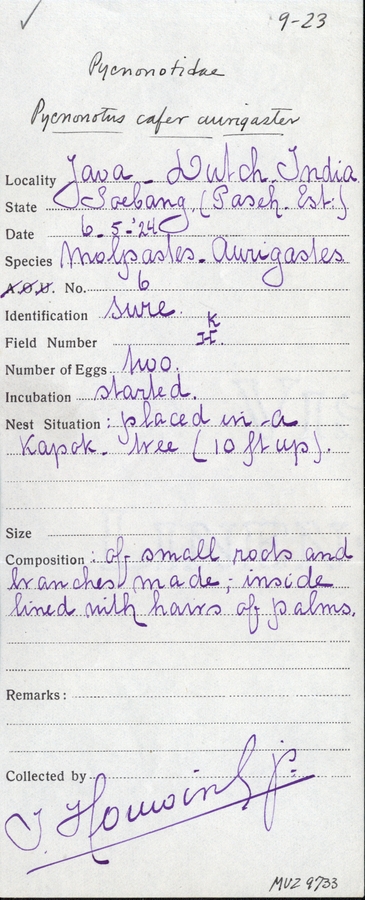 ✓ 9-23
Pycnonotidae
Pycnonotus cafer aurigaster
Locality Java - Dutch India
State Soebang, (Paseh. Est.)
Date 6-5-'24
Species Molpastes. Aurigastes
A.O.U. No. 6
Identification sure.
Field Number K
Number of Eggs two.
Incubation started.
Nest Situation : placed in a
Kapok- tree (10 ft up).
Size
Composition : of small roots and
branches made; inside
lined with hairs of palms.
Remarks:
Collected by J.
MVZ 9733